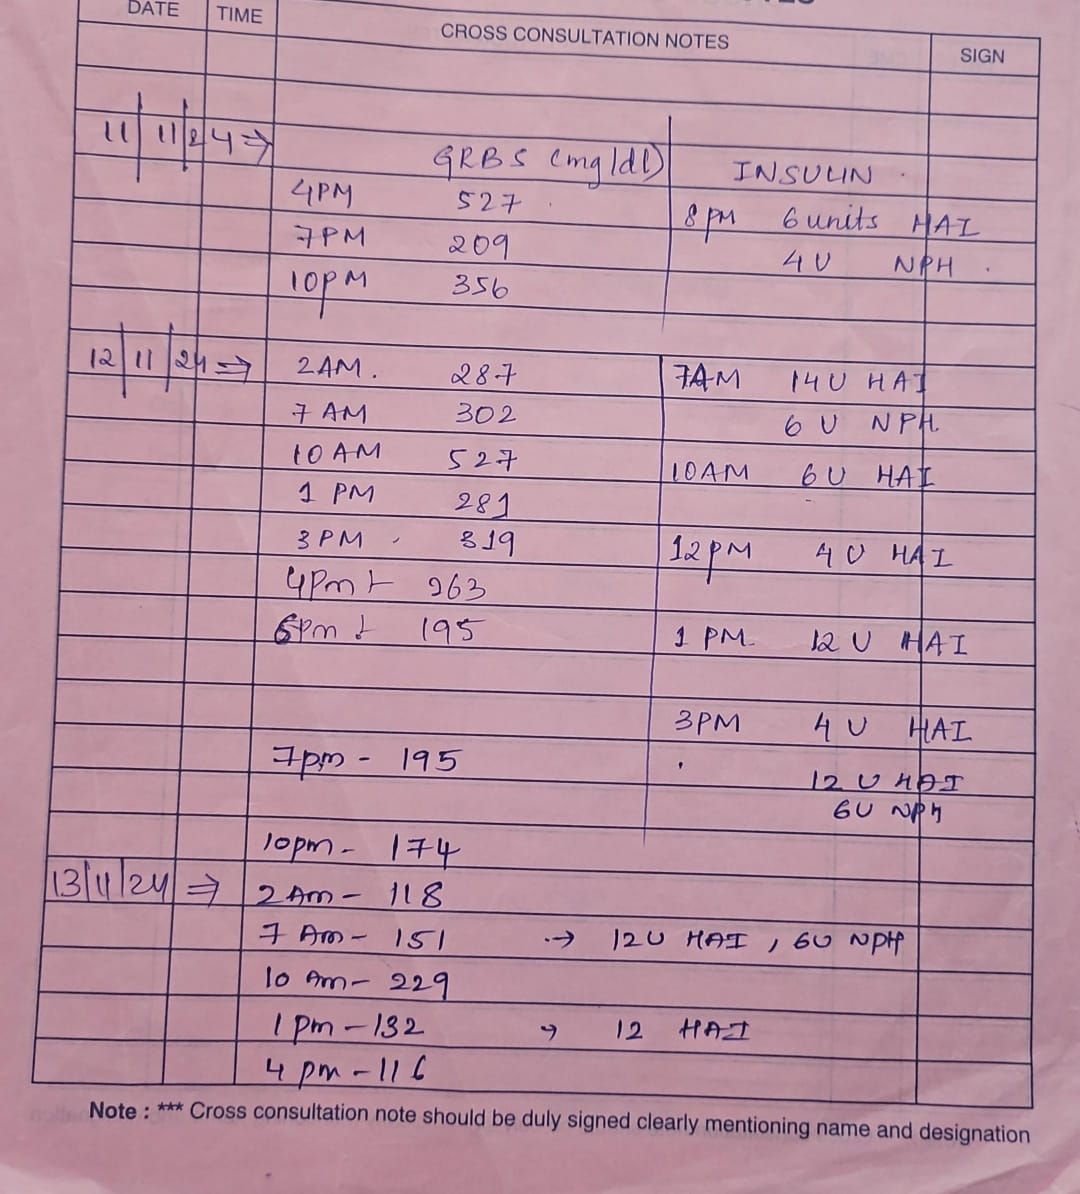 DATE TIME CROSS CONSULTATION NOTES SIGN
11/11/24 ⇒ GRBS (mg/dl) INSULIN
4PM 527 8 PM 6 units HAI
7PM 209 4 U NPH
10PM 356
12/11/24 ⇒ 2 AM. 287 7AM 14 U HAI
7 AM 302 6 U NPH
10 AM 527 10AM 6 U HAI
1 PM 281
3 PM 319 12 PM 4 U HAI
4pm 263
6pm 195 1 PM 12 U HAI
3PM 4 U HAI
7pm - 195 12 U HAI
6U NPH
10pm - 174
13/11/24 ⇒ 2 Am - 118
7 Am - 151 → 12U HAI, 6U NPH
10 Am - 229
1 pm - 132 → 12 HAI
4 pm - 116
Note : *** Cross consultation note should be duly signed clearly mentioning name and designation